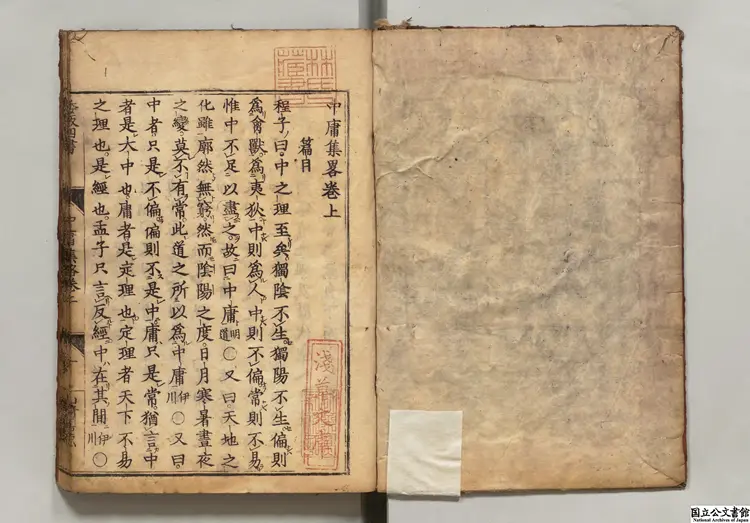 中庸集畧卷上
篇目
程子曰中之理至矣獨陰不生獨陽不生偏則
爲禽獸爲夷狄中則爲人中則不偏常則不易
惟中不足以盡之故曰中庸明道〇又曰天地之
化雖廓然無窮然而陰陽之度日月寒暑晝夜
之變莫不有常此道之所以爲中庸伊川〇又曰
中者只是不偏偏則不是中庸只是常猶言中
者是大中也庸者是定理也定理者天下不易
之理也是經也孟子只言反經中在其間伊川〇
淺草文庫
国立公文書館
National Archives of Japan